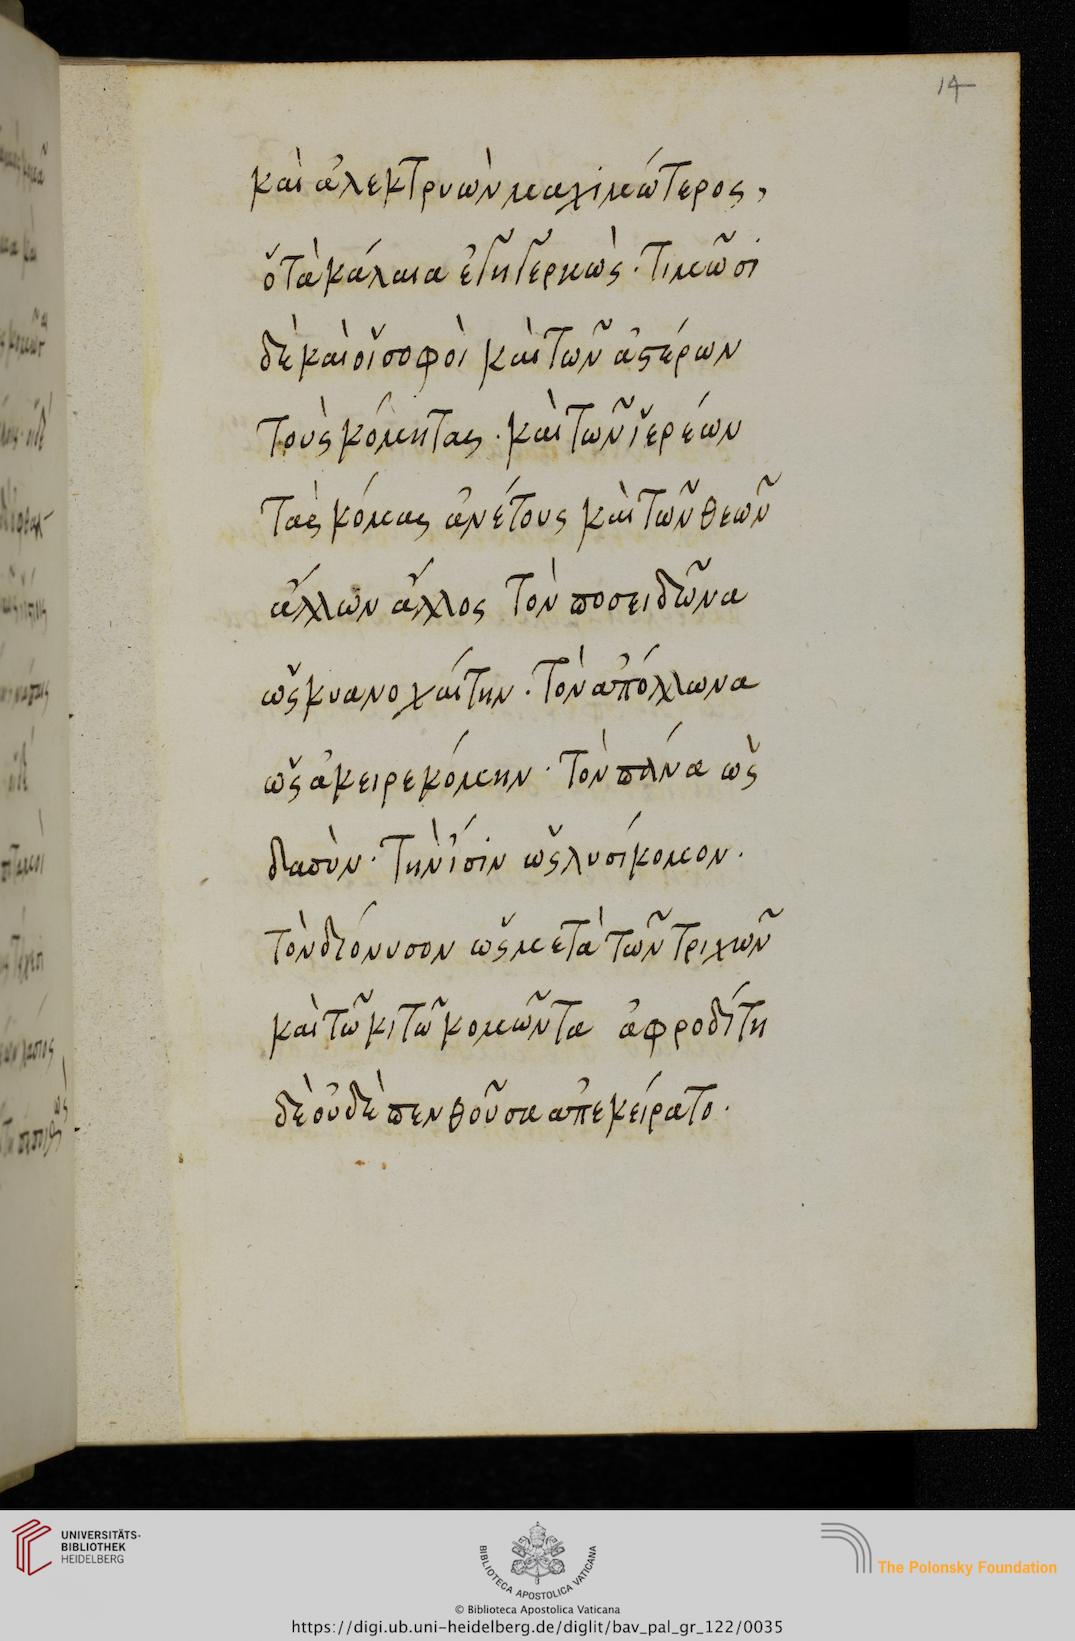 14
καὶ ἀλεκτρυὼν μαχιμώτερος,
ὁ τὰ κάλαια
δὲ καὶ οἱ σοφοὶ καὶ τῶν ἀστέρων
τοὺς κομήτας · καὶ τῶν ἱερέων
τὰς κόμας ἀνέτους καὶ τῶν θεῶν
ἄλλων ἄλλος τὸν ποσειδῶνα
ὡς κυανοχαίτην · τὸν ἀπόλλωνα
ὡς ἀκειρεκόμην · τὸν πάνα ὡς
δασὺν · τὴν ἶσιν ὡς λυσίκομον ·
τὸν διόνυσον ὡς μετὰ τῶν τριχῶν
καὶ τῶ κιτῶ κομῶντα ἀφροδίτη
δὲ οὐδὲ πενθοῦσα ἀπεκείρατο ·
UNIVERSITÄTS-
BIBLIOTHEK
HEIDELBERG
BIBLIOTECA APOSTOLICA VATICANA
The Polonsky Foundation
© Biblioteca Apostolica Vaticana
https://digi.ub.uni-heidelberg.de/diglit/bav_pal_gr_122/0035